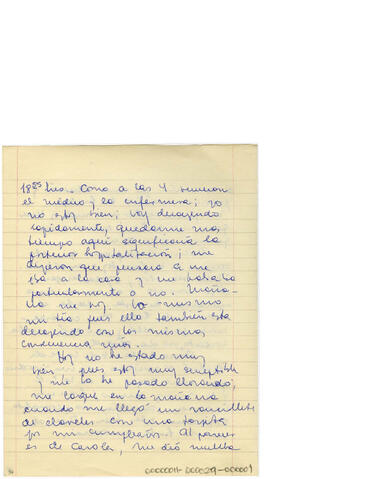 18²⁵ hrs. Como a las 4 vinieron
el médico y la enfermera; yo
no estoy bien; voy decayendo
rapidamente, quedarme más
tiempo aquí significaría la
posterior hospitalización; me
dijeron que pensara si me
iba a la casa y me trataba
particularmente o no. Maña-
na me voy. Lo mismo
mi tía pues ella también está
decayendo con los mismos
Hoy no he estado muy
bien pues estoy muy
y me lo he pasado llorando;
en la mañana
cuando me llegó un ramillete
de claveles con una tarjeta
por mi cumpleaños. Al parecer
es de Carola, me dió mucha
0000011-000029-000001